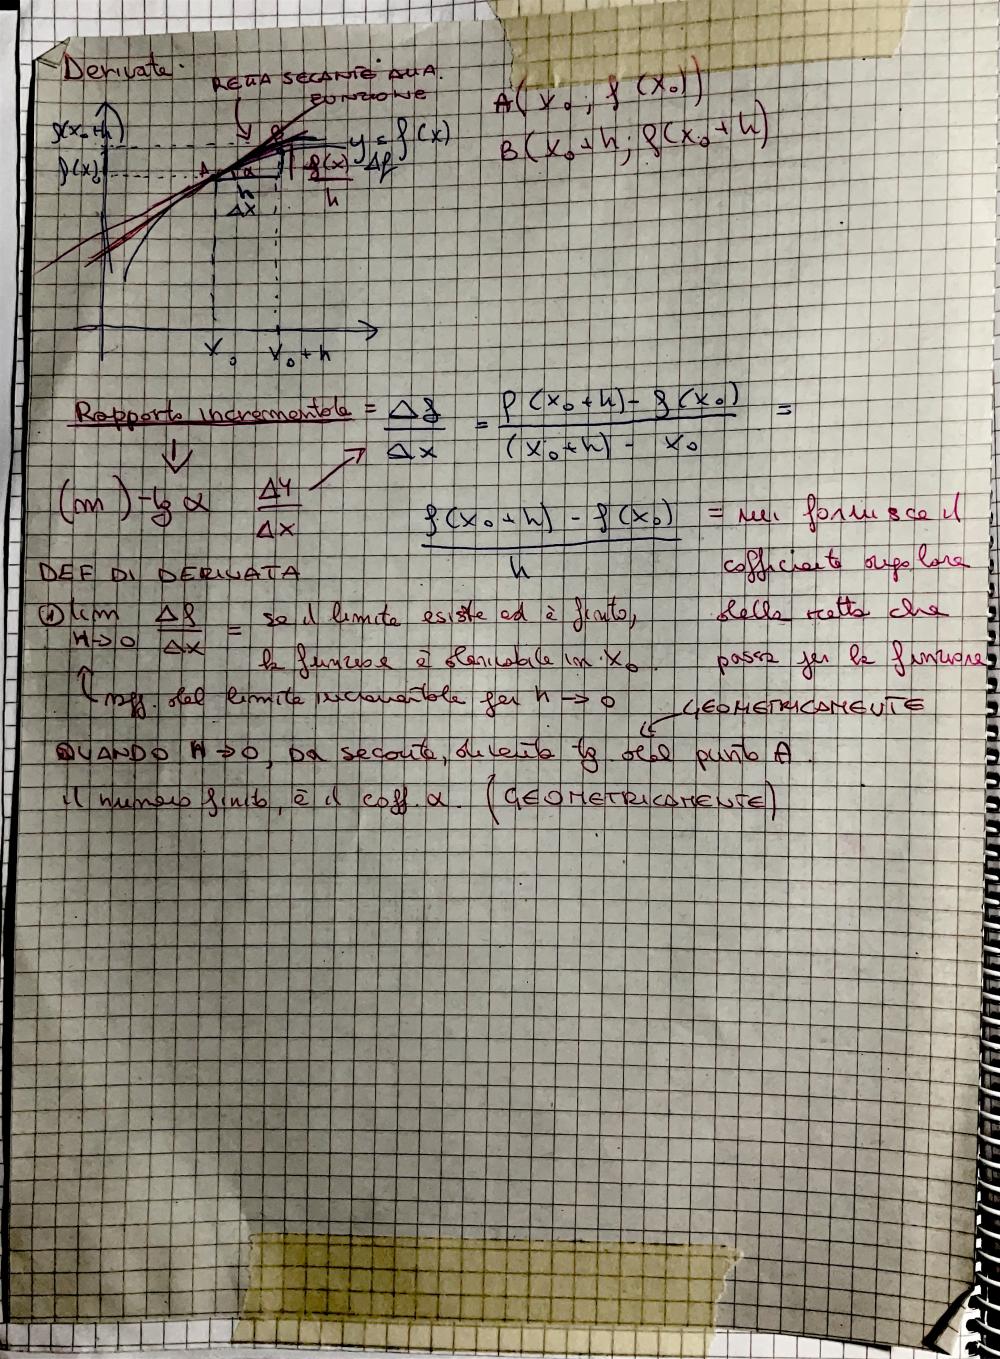 Derivate
RETTA SECANTE ALLA
FUNZIONE
A(x₀ ; f(x₀))
B(x₀+h ; f(x₀+h))
f(x₀+h)
y = f(x)
f(x₀)
A α f(x)/h Δf
h
Δx
x₀ x₀+h
Rapporto incrementale = Δf/Δx = f(x₀+h) - f(x₀) / (x₀+h) - x₀ =
(m) = tg α Δy/Δx
f(x₀+h) - f(x₀) / h = mi fornisce il
cofficiente angolare
della retta che
passa per la funzione
DEF DI DERIVATA
lim h→0 Δf/Δx = se il limite esiste ed è finito,
la funzione è derivabile in x₀.
del limite incrementale per h → 0
GEOMETRICAMENTE
QUANDO h→0, DA secante, diventa tg del punto A.
il numero finito, è il coff. α. (GEOMETRICAMENTE)